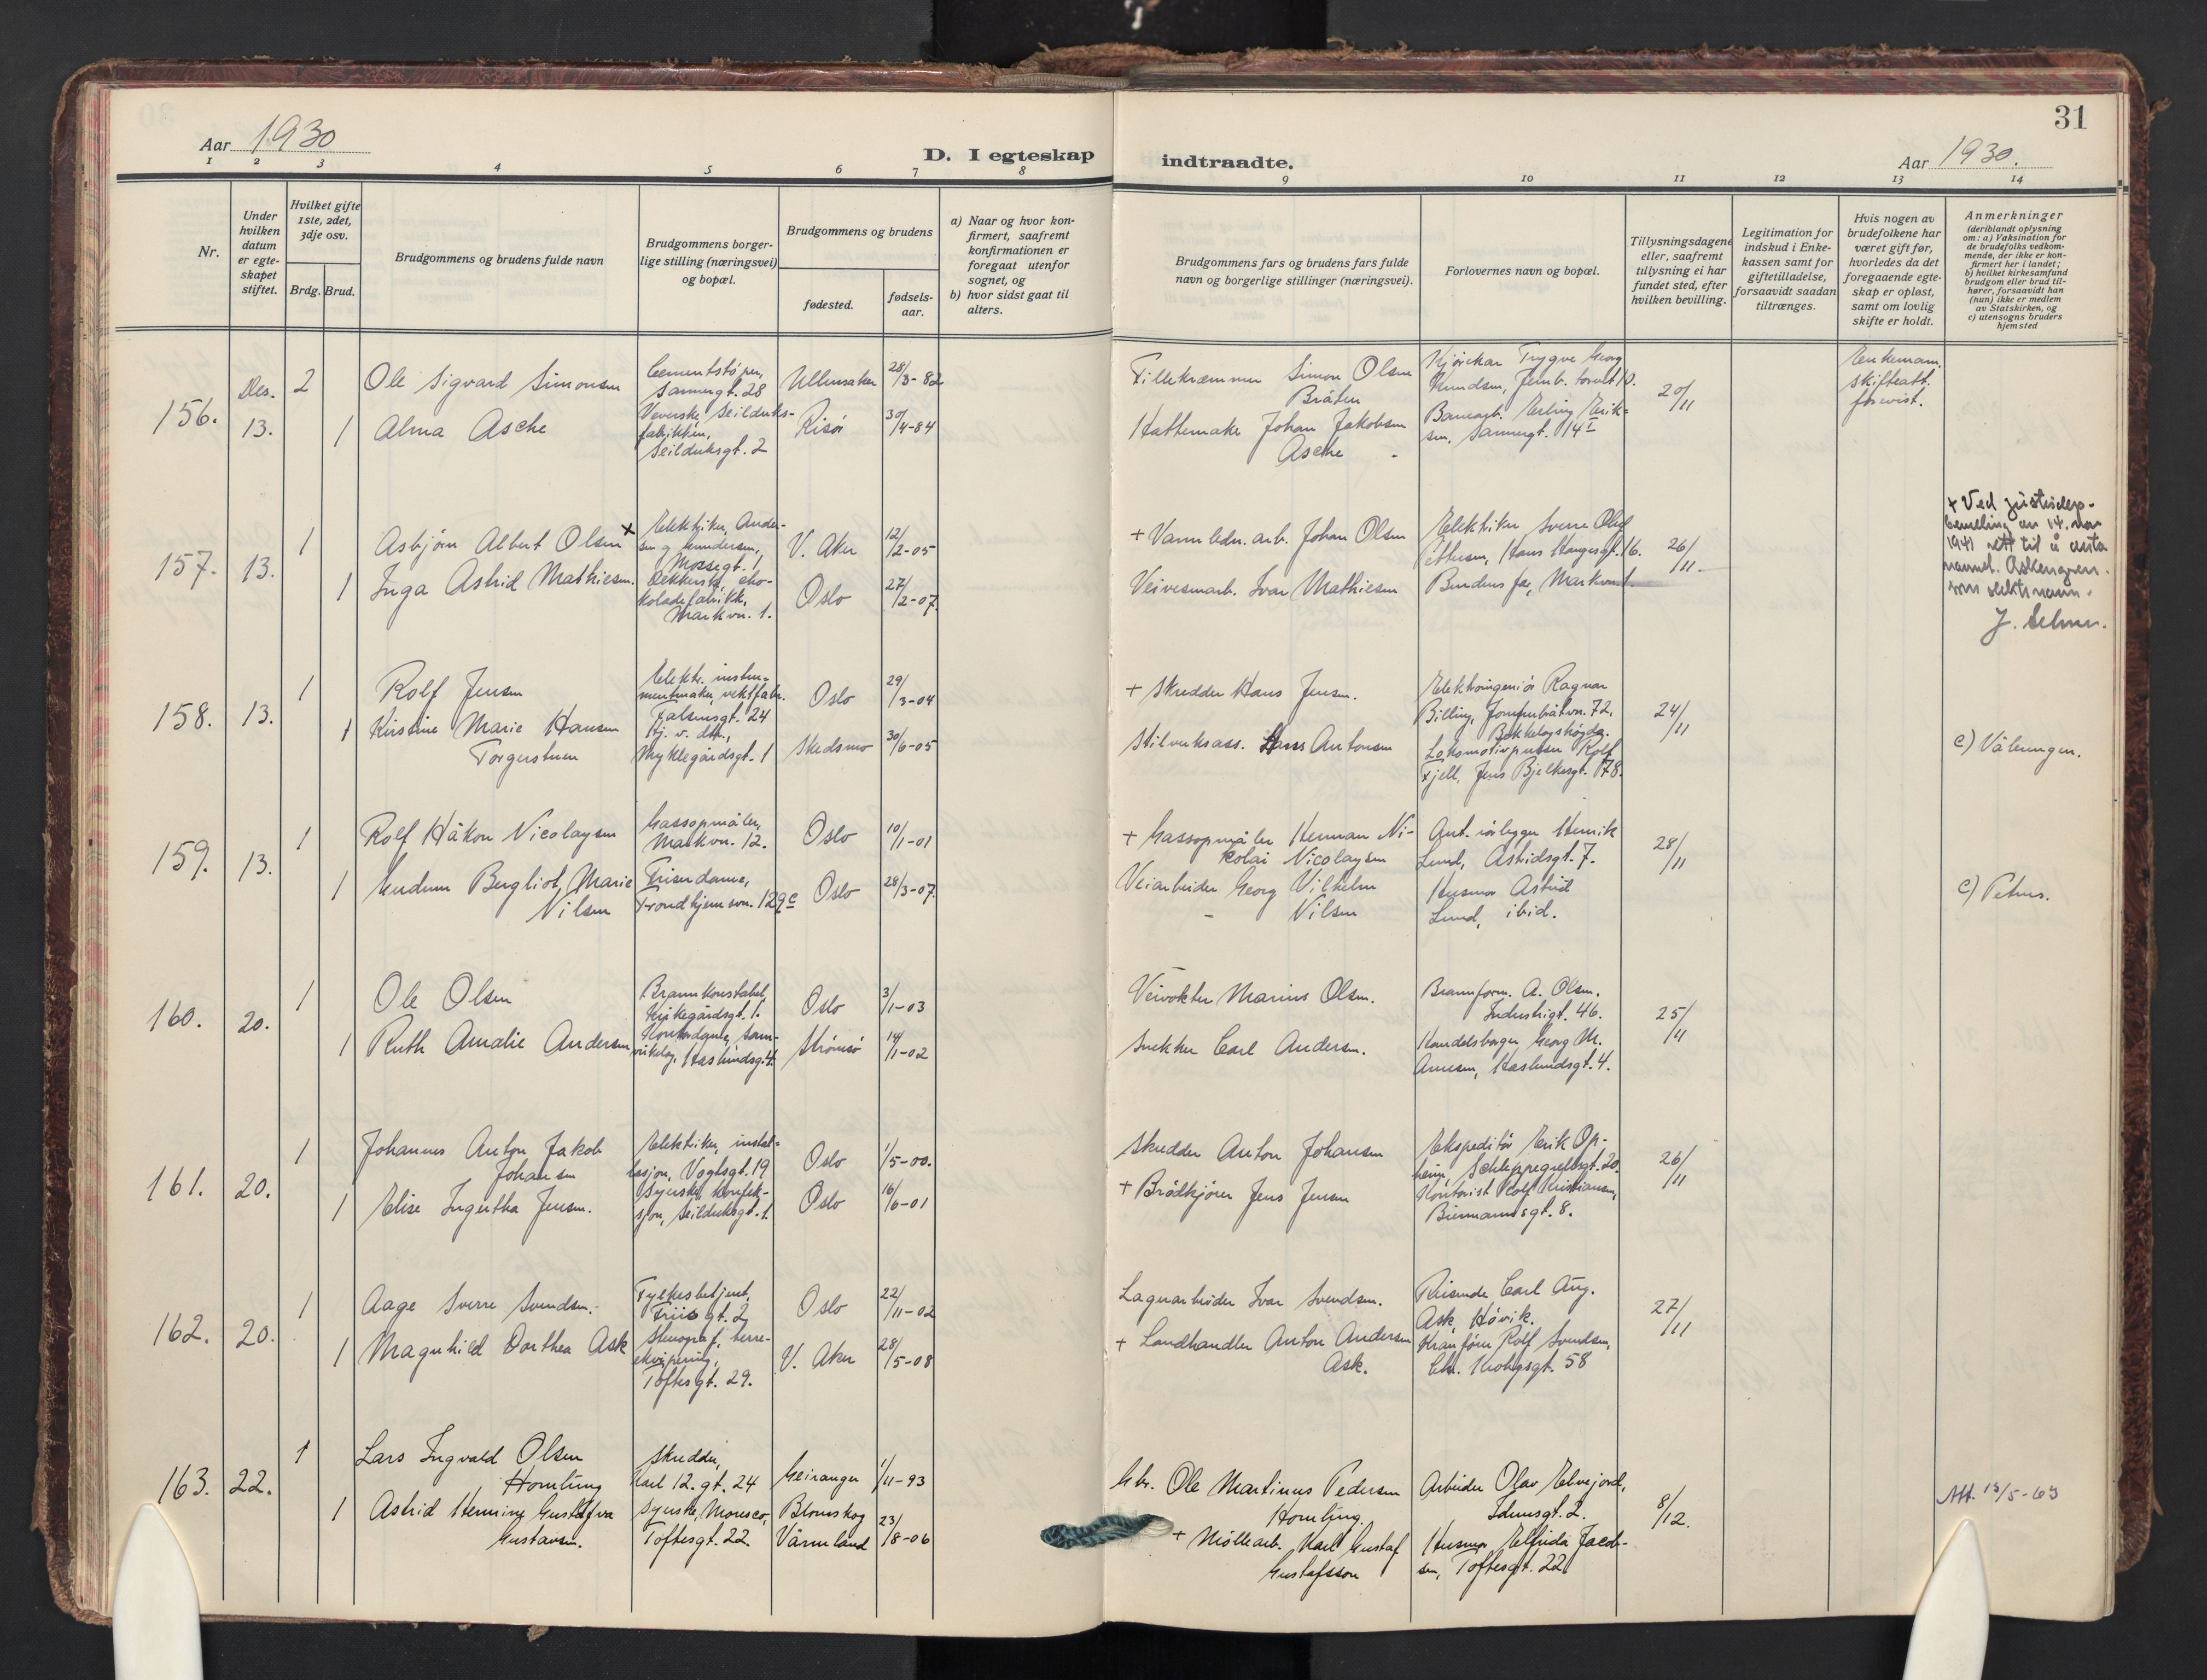 31
Aar 1930
D. I egteskap indtraadte.
Aar 1930.
1 2 3 4 5 6 7 8 9 10 11 12 13 14
Nr.
Under hvilken datum er egte-skapet stiftet.
Hvilket gifte 1ste, 2det, 3dje osv.
Brdg. Brud.
Brudgommens og brudens fulde navn
Brudgommens borger-
lige stilling (næringsvei)
og bopæl.
Brudgommens og brudens
fødested.
fødsels-
aar.
a) Naar og hvor kon-
firmert, saafremt
konfirmationen er
foregaat utenfor
sognet, og
b) hvor sidst gaat til
alters.
Brudgommens fars og brudens fars fulde
navn og borgerlige stillinger (næringsvei).
Forlovernes navn og bopæl.
Tillysningsdagene
eller, saafremt
tillysning ei har
fundet sted, efter
hvilken bevilling.
Legitimation for
indskud i Enke-
kassen samt for
giftetilladelse,
forsaavidt saadan
tiltrænges.
Hvis nogen av
brudefolkene har
været gift før,
hvorledes da det
foregaaende egte-
skap er opløst,
samt om lovlig
skifte er holdt.
Anmerkninger
(deriblandt oplysning
om: a) Vaksination for
de brudefolks vedkom-
mende, der ikke er kon-
firmert her i landet;
b) hvilket kirkesamfund
brudgom eller brud til-
hører, forsaavidt han
(hun) ikke er medlem
av Statskirken, og
c) utensogns bruders
hjemsted
156.
Des.
13.
2
Ole Sigvard Simonsen
Cementstøper,
Sannergt. 28
Ullensaker
28/3-82
Fillekræmmer Simon Olsen
Bråten
Kjørekar Trygve Georg
Knudsen, Jernb. torvet 10.
20/11
Enkemann.
Skifteatt.
forevist.
1
Alma Asche
Veverske, Seilduks-
fabrikken,
Seilduksgt. 2
Risør
30/4-84
Hattemaker Johan Jakobsen
Asche
Banearb. Erling Erik-
sen, Sannergt. 14 I
157.
13.
1
Asbjørn Albert Olsen x
Elektriker, Ander-
sen og Gundersen,
Mossegt. 1
V. Aker
12/2-05
+ Varmledn. arb. Johan Olsen
Elektriker Sverre Oluf
Pettersen, Hans Haugesgt. 16.
26/11
+ Ved justisdep.
bevilling av 14. nov
1941 rett til å anta
navnet. Askengren
som slektsnavn.
J. Selmer.
1
Inga Astrid Mathiesen.
Dekkerske, cho-
koladefabrikk,
Markvn. 1.
Oslo
27/2-07.
Veivesenarb. Ivar Mathiesen
Brudens far, Markvn 1
158.
13.
1
Rolf Jensen
Elektr. instru-
mentmaker, vektfabr.
Falsensgt. 24
Oslo
29/3-04
+ Skredder Hans Jensen.
Elektroingeniør Ragnar
Billing, Jomfrubråtvn. 72,
Bekkelagshøgda.
24/11
1
Kirstine Marie Hansen
Torgerstuen
Hj. v. dtr.,
Myklegårdsgt. 1
Skedsmo
30/6-05
Stilverksass. Hans Antonsen
Lokomotivpusser Rolf
Fjell, Jens Bjelkesgt. 78.
c) Vålerengen.
159.
13.
1
Rolf Håkon Nicolaysen
Gassopmåler,
Markvn. 12.
Oslo
10/1-01
+ Gassopmåler Herman Ni-
kolai Nicolaysen
Aut. rørlegger Henrik
Lund, Astridsgt. 7.
28/11
1
Gudrun Bergliot Marie
Nilsen
Friserdame,
Trondhjemsvn. 129 c
Oslo
28/3-07.
Veiarbeider Georg Vilhelm
Nilsen
Husmor Astrid
Lund, ibid.
c) Petrus.
160.
20.
1
Ole Olsen
Brannkonstabel,
Kirkegårdsgt. 1.
Oslo
3/1-03
Veivokter Marius Olsen.
Brannform. A. Olsen.
Industrigt. 46.
25/11
1
Ruth Amalie Andersen
Kontordame, sam-
virkelag, Haslundsgt. 4.
Strømsø
14/1-02
Snekker Carl Andersen.
Handelsborger Georg M.
Arnesen, Haslundsgt. 4.
161.
20.
1
Johannes Anton Jakob
Johansen
Elektriker, instal-
lasjon, Vogtsgt. 19
Oslo
1/5-00.
Skredder Anton Johansen
Ekspeditør Erik Op-
heim, Schleppegrellsgt. 20.
26/11
1
Elise Ingertha Jensen.
Syerske, konfek-
sjon, Seilduksgt. 1.
Oslo
16/6-01
+ Brødkjører Jens Jensen
Kontorist Rolf Kristiansen,
Biermannsgt. 8.
162.
20.
1
Aage Sverre Svendsen.
Fylkesbetjent,
Friis gt. 2
Oslo
22/11-02
Lagerarbeider Ivar Svendsen.
Reisende Carl Aug.
Ask, Høvik.
27/11
1
Magnhild Dorthea Ask
Stenograf, herre-
ekvipering,
Toftesgt. 29.
V. Aker
28/5-08
+ Landhandler Anton Andersen
Ask.
Kranfører Rolf Svendsen,
Chr. Krohgsgt. 58
163.
22.
1
Lars Ingvald Olsen
Homlung
Skredder,
Karl 12. gt. 24
Geiranger
1/11-93
Gbr. Ole Martinus Pedersen
Homlung.
Arbeider Olav Elvejord,
Idunsgt. 2.
8/12.
Att. 13/5-63
1
Astrid Henning Gustafva
Gustavsen.
Syerske, Moresco,
Toftesgt. 22.
Blomskog
Värmland
23/8-06
+ Møllearb. Karl Gustaf
Gustafsson
Husmor Elfrida Jacob-
sen, Toftesgt. 22